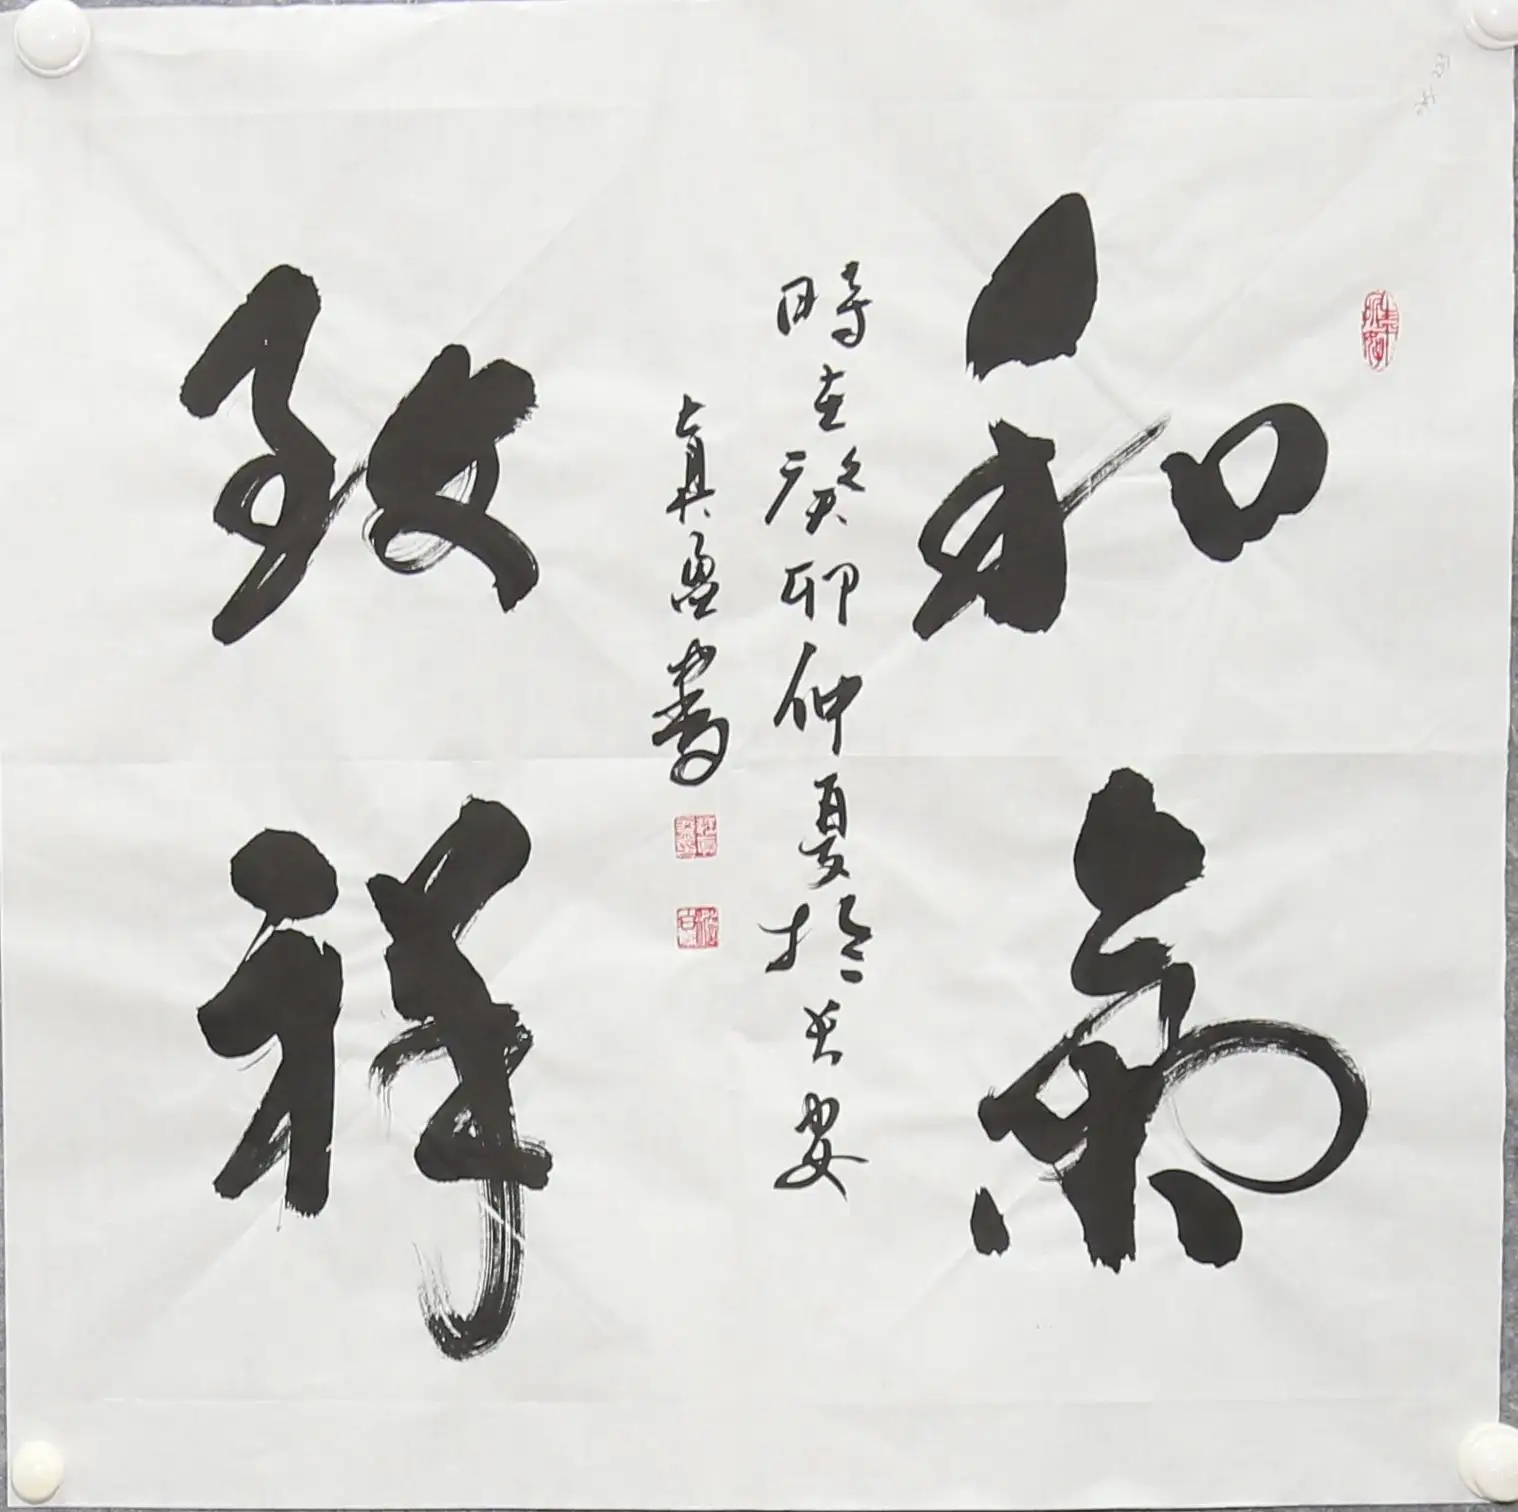 和氣
致祥
時在癸卯仲夏於长安
真盈書